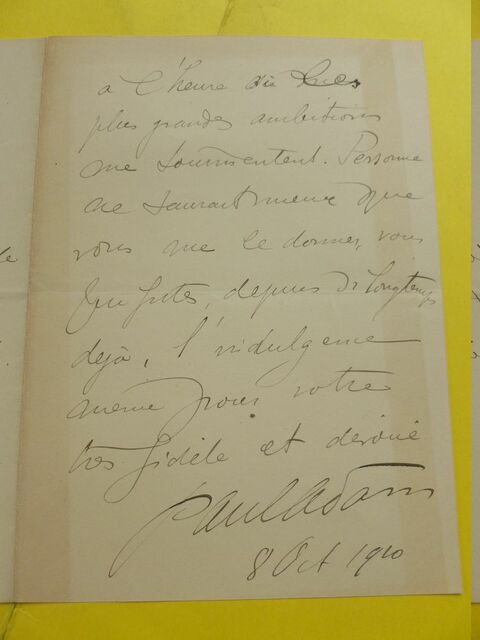 à l'heure où les
plus grandes ambitions
me tourmentent. Personne
ne saurait mieux que
vous me le donner, vous
qui fûtes, depuis si longtemps
déjà, l'indulgence
même pour votre
très fidèle et dévoué
Paul Adam
8 Oct 1910